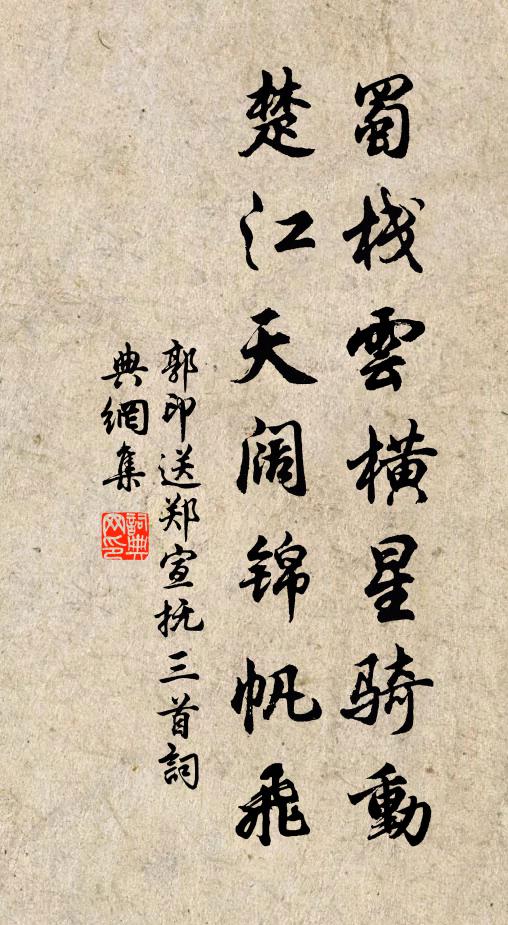 蜀栈雲横星骑動
楚江天阔锦帆飛
郭印送郑宣抚三首詞
典網集
詞典網印